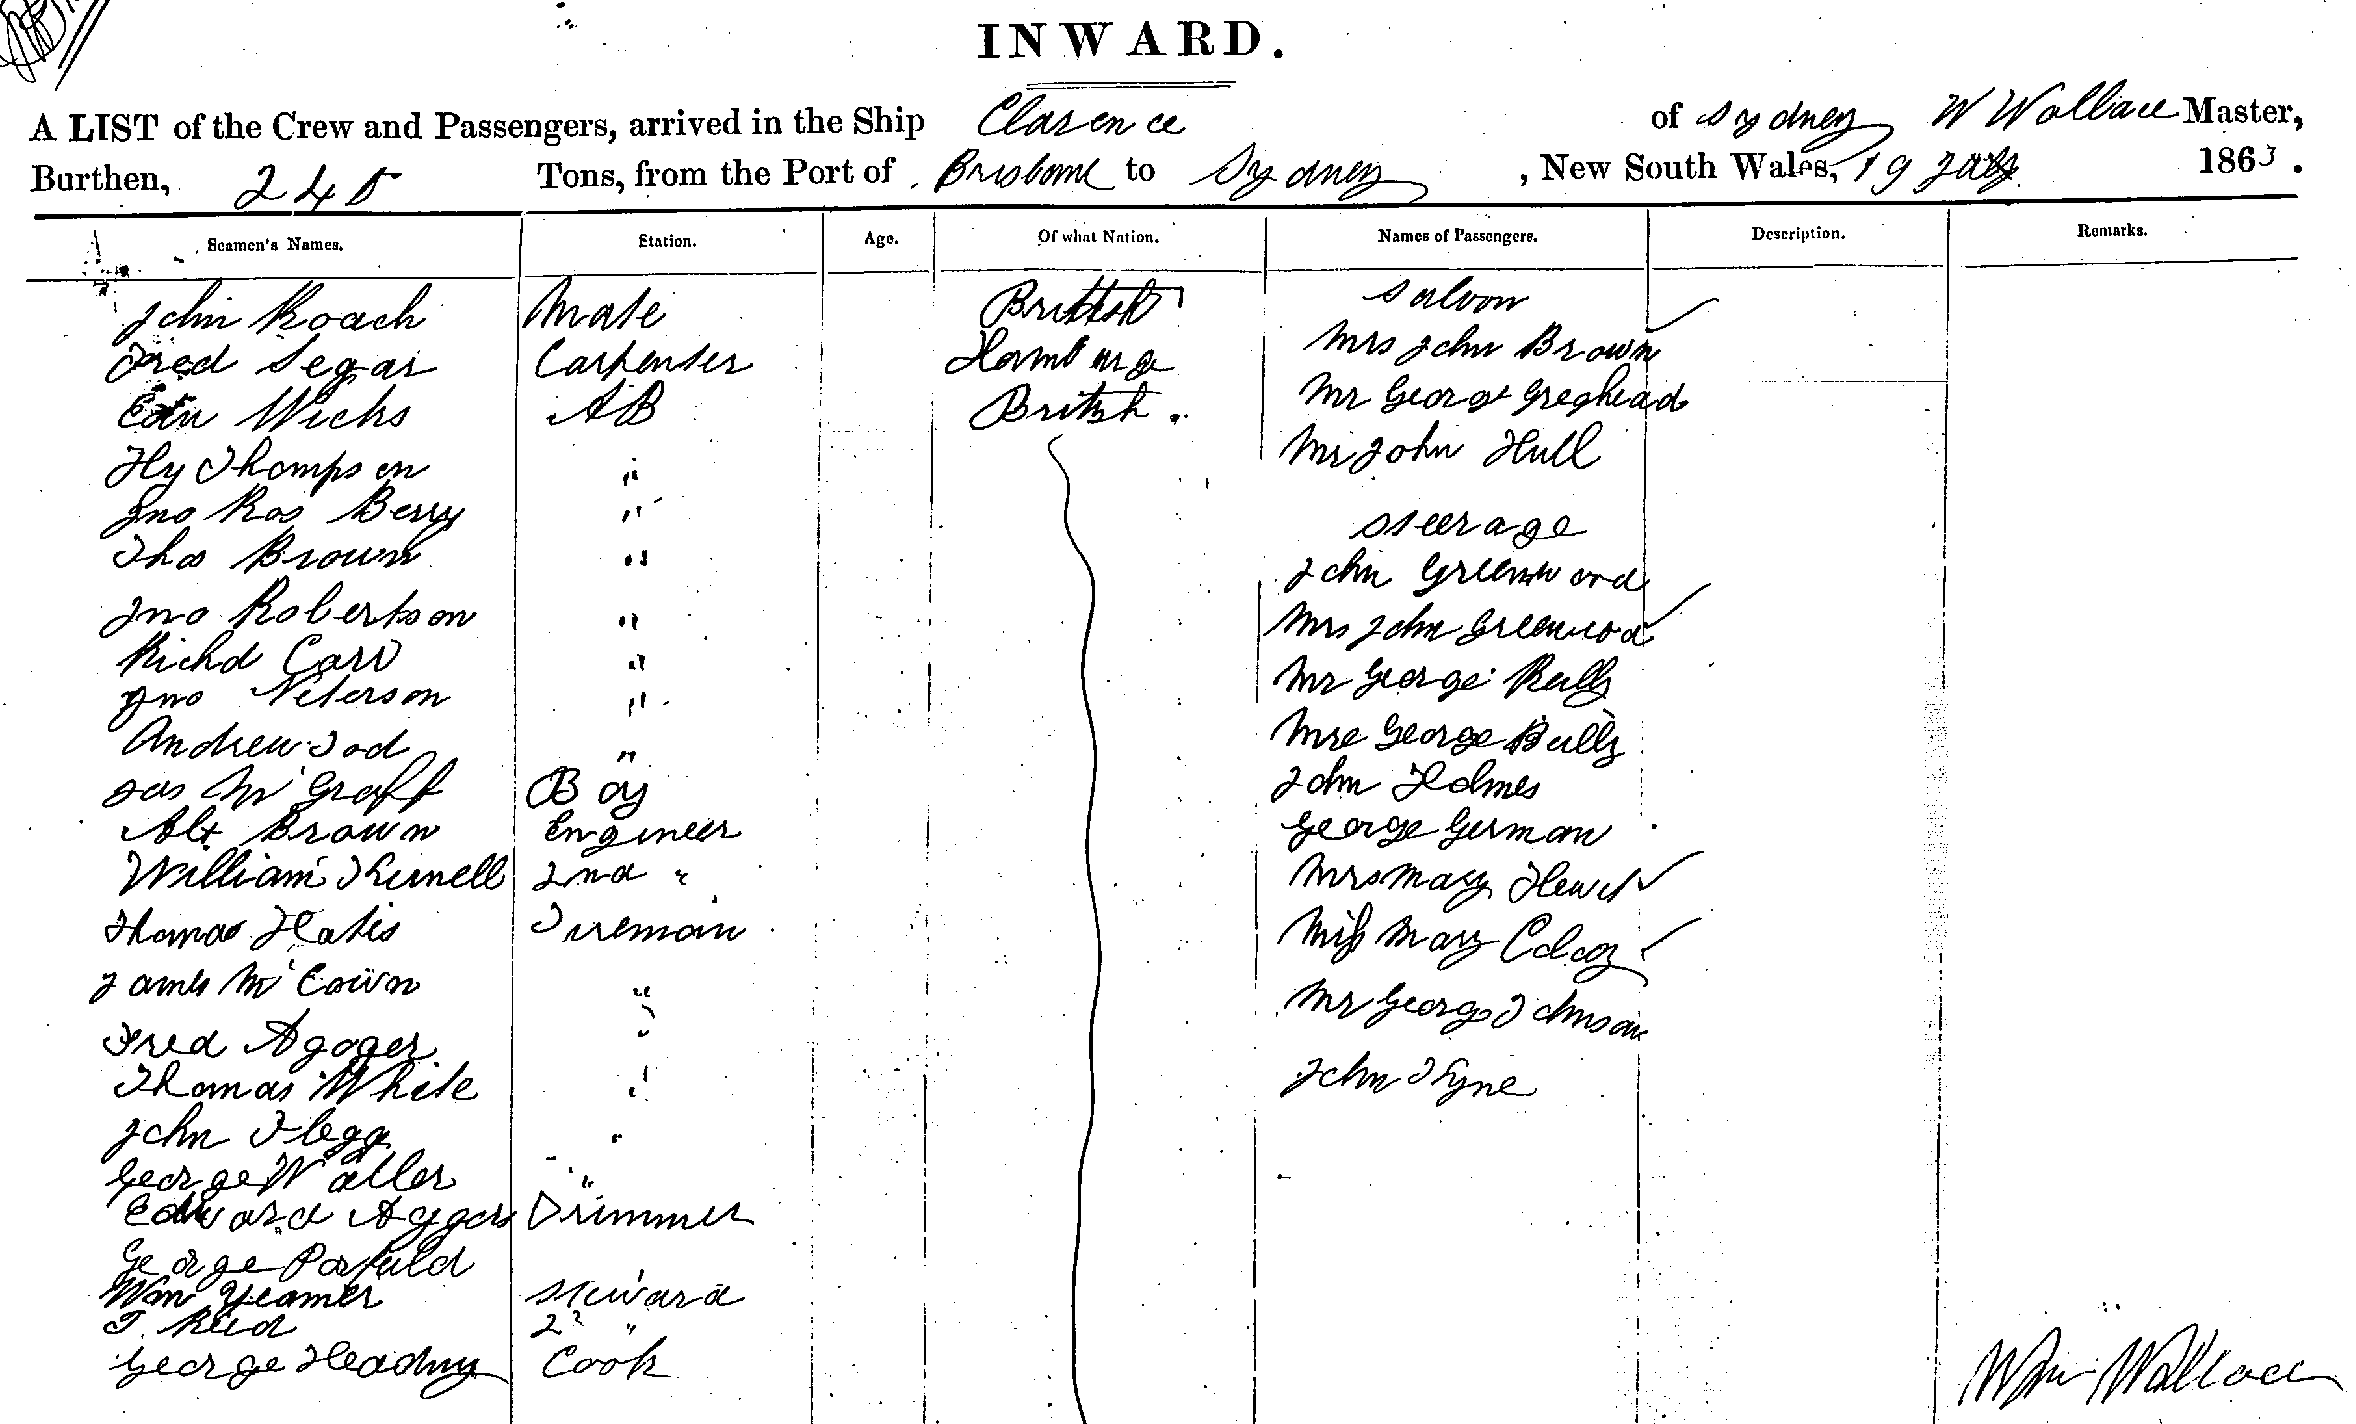 INWARD.
A LIST of the Crew and Passengers, arrived in the Ship Clarence of Sydney W Wallace Master,
Burthen, 245 Tons, from the Port of Brisbane to Sydney, New South Wales, 19 July 1863.
Seamen's Names. Station. Age. Of what Nation. Names of Passengers. Description. Remarks.
John Roach Mate British Saloon
Fred Segar Carpenter Hamburge Mrs John Brown
Edw Wicks AB British Mr George Greghead
Hy Thompson " Mr John Hull
Jno Ros Berry " Steerage
Thos Brown " John Greenwood
Jno Robertson " Mrs John Greenwood
Richd Carr " Mr George
Jno Peterson " Mrs George
Andrew Tod " John Holmes
Jas McGraff Boy George German
Alx Brown Engineer Mrs Mary
William 2nd " Miss Mary
Thomas Fireman Mr George Johnson
James McCown " John Tyne
Fred Agoger "
Thomas White "
John Flegg "
George Waller "
Edward Aggers Trimmer
George
Wm Yeamer Steward
T. Reed 2d "
George Cook
Wm Wallace